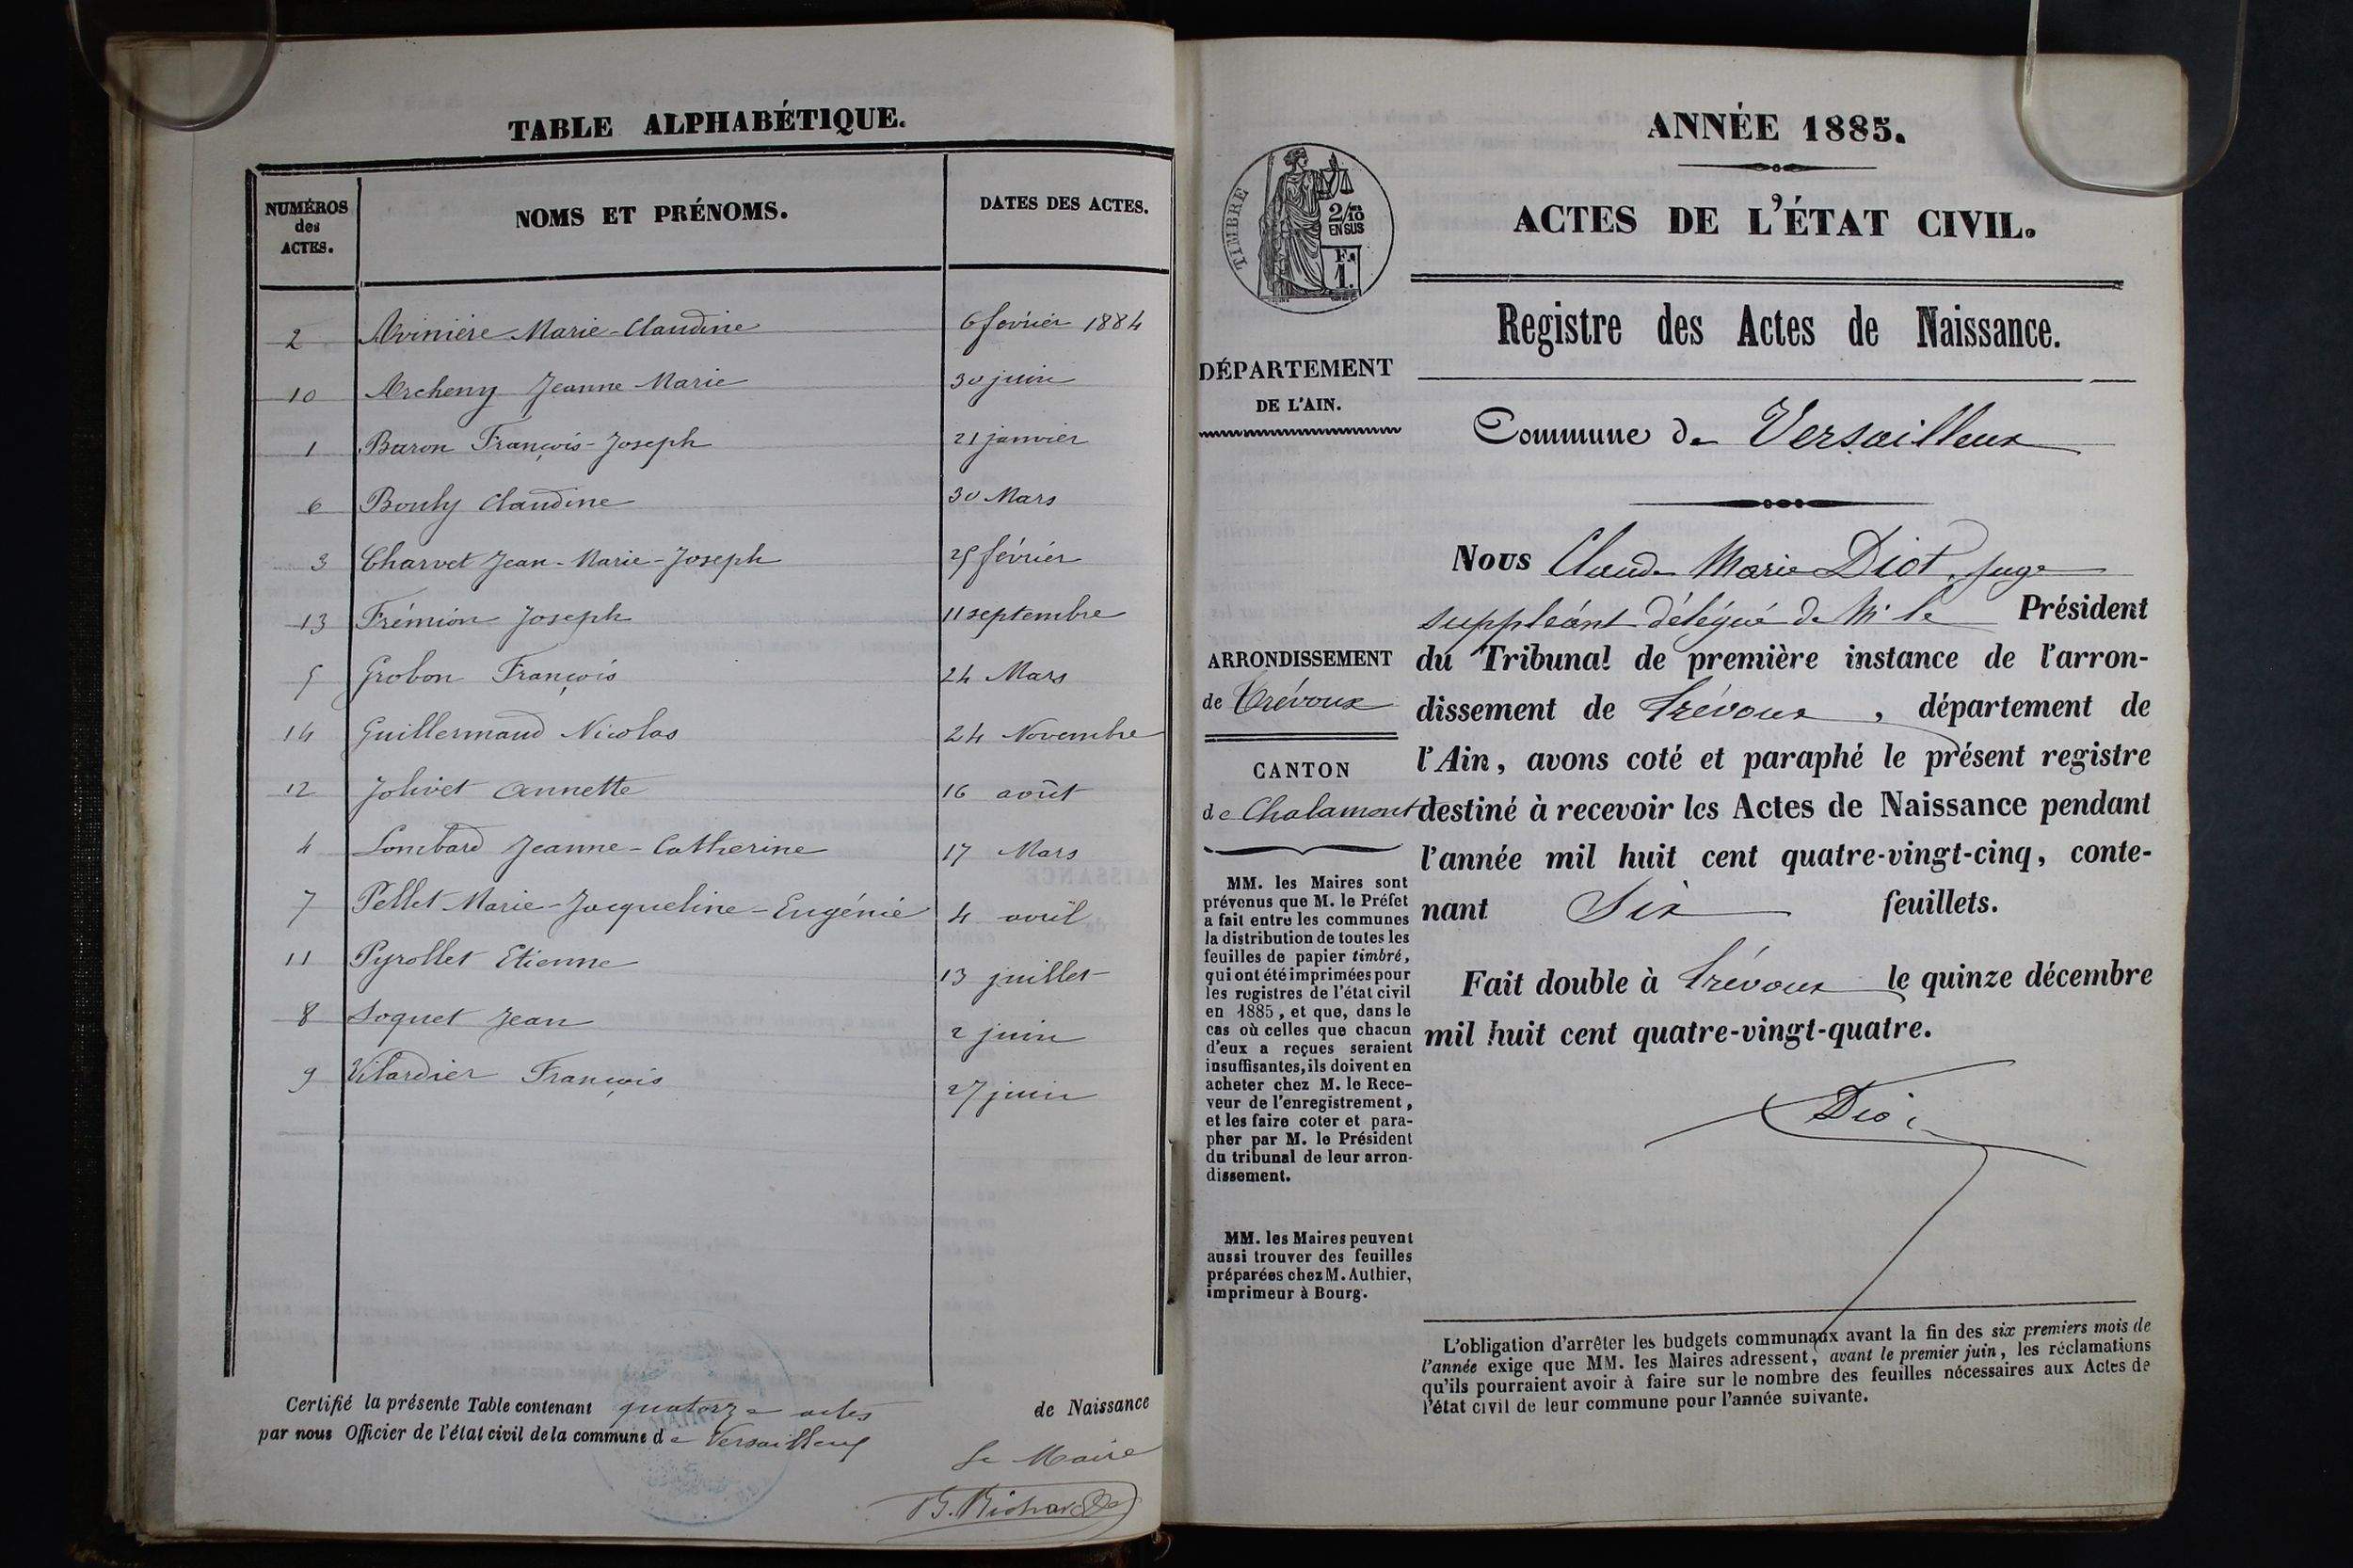 TABLE ALPHABÉTIQUE.
NUMÉROS des ACTES. NOMS ET PRÉNOMS. DATES DES ACTES.
2 Avinière Marie-Claudine 6 février 1884
10 Archeny Jeanne Marie 30 juin
1 Baron François-Joseph 21 janvier
6 Bouly Claudine 30 Mars
3 Charvet Jean-Marie-Joseph 25 février
13 Frémion Joseph 11 septembre
5 Grobon François 24 Mars
14 Guillermaud Nicolas 24 Novembre
12 Jolivet Annette 16 août
4 Lombard Jeanne-Catherine 17 Mars
7 Pellet Marie-Jacqueline-Eugénie 4 avril
11 Pyrollet Etienne 13 juillet
8 Soquet Jean 2 juin
9 Vilardier François 27 juin
Certifié la présente Table contenant quatorze actes de Naissance
par nous Officier de l'état civil de la commune de Versailleux
Le Maire
ANNÉE 1885.
ACTES DE L'ÉTAT CIVIL.
TIMBRE
2/10 es
EN SUS
F. 1.
Registre des Actes de Naissance.
DÉPARTEMENT
DE L'AIN.
Commune de Versailleux
ARRONDISSEMENT
de Trévoux
CANTON
de Chalamont
MM. les Maires sont
prévenus que M. le Préfet
a fait entre les communes
la distribution de toutes les
feuilles de papier timbré,
qui ont été imprimées pour
les registres de l'état civil
en 1885, et que, dans le
cas où celles que chacun
d'eux a reçues seraient
insuffisantes, ils doivent en
acheter chez M. le Rece-
veur de l'enregistrement,
et les faire coter et para-
pher par M. le Président
du tribunal de leur arron-
dissement.
MM. les Maires peuvent
aussi trouver des feuilles
préparées chez M. Authier,
imprimeur à Bourg.
Nous Claude Marie Diot, juge
suppléant délégué de Mr le Président
du Tribunal de première instance de l'arron-
dissement de Trévoux, département de
l'Ain, avons coté et paraphé le présent registre
destiné à recevoir les Actes de Naissance pendant
l'année mil huit cent quatre-vingt-cinq, conte-
nant Six feuillets.
Fait double à Trévoux le quinze décembre
mil huit cent quatre-vingt-quatre.
Diot
L'obligation d'arrêter les budgets communaux avant la fin des six premiers mois de
l'année exige que MM. les Maires adressent, avant le premier juin, les réclamations
qu'ils pourraient avoir à faire sur le nombre des feuilles nécessaires aux Actes de
l'état civil de leur commune pour l'année suivante.